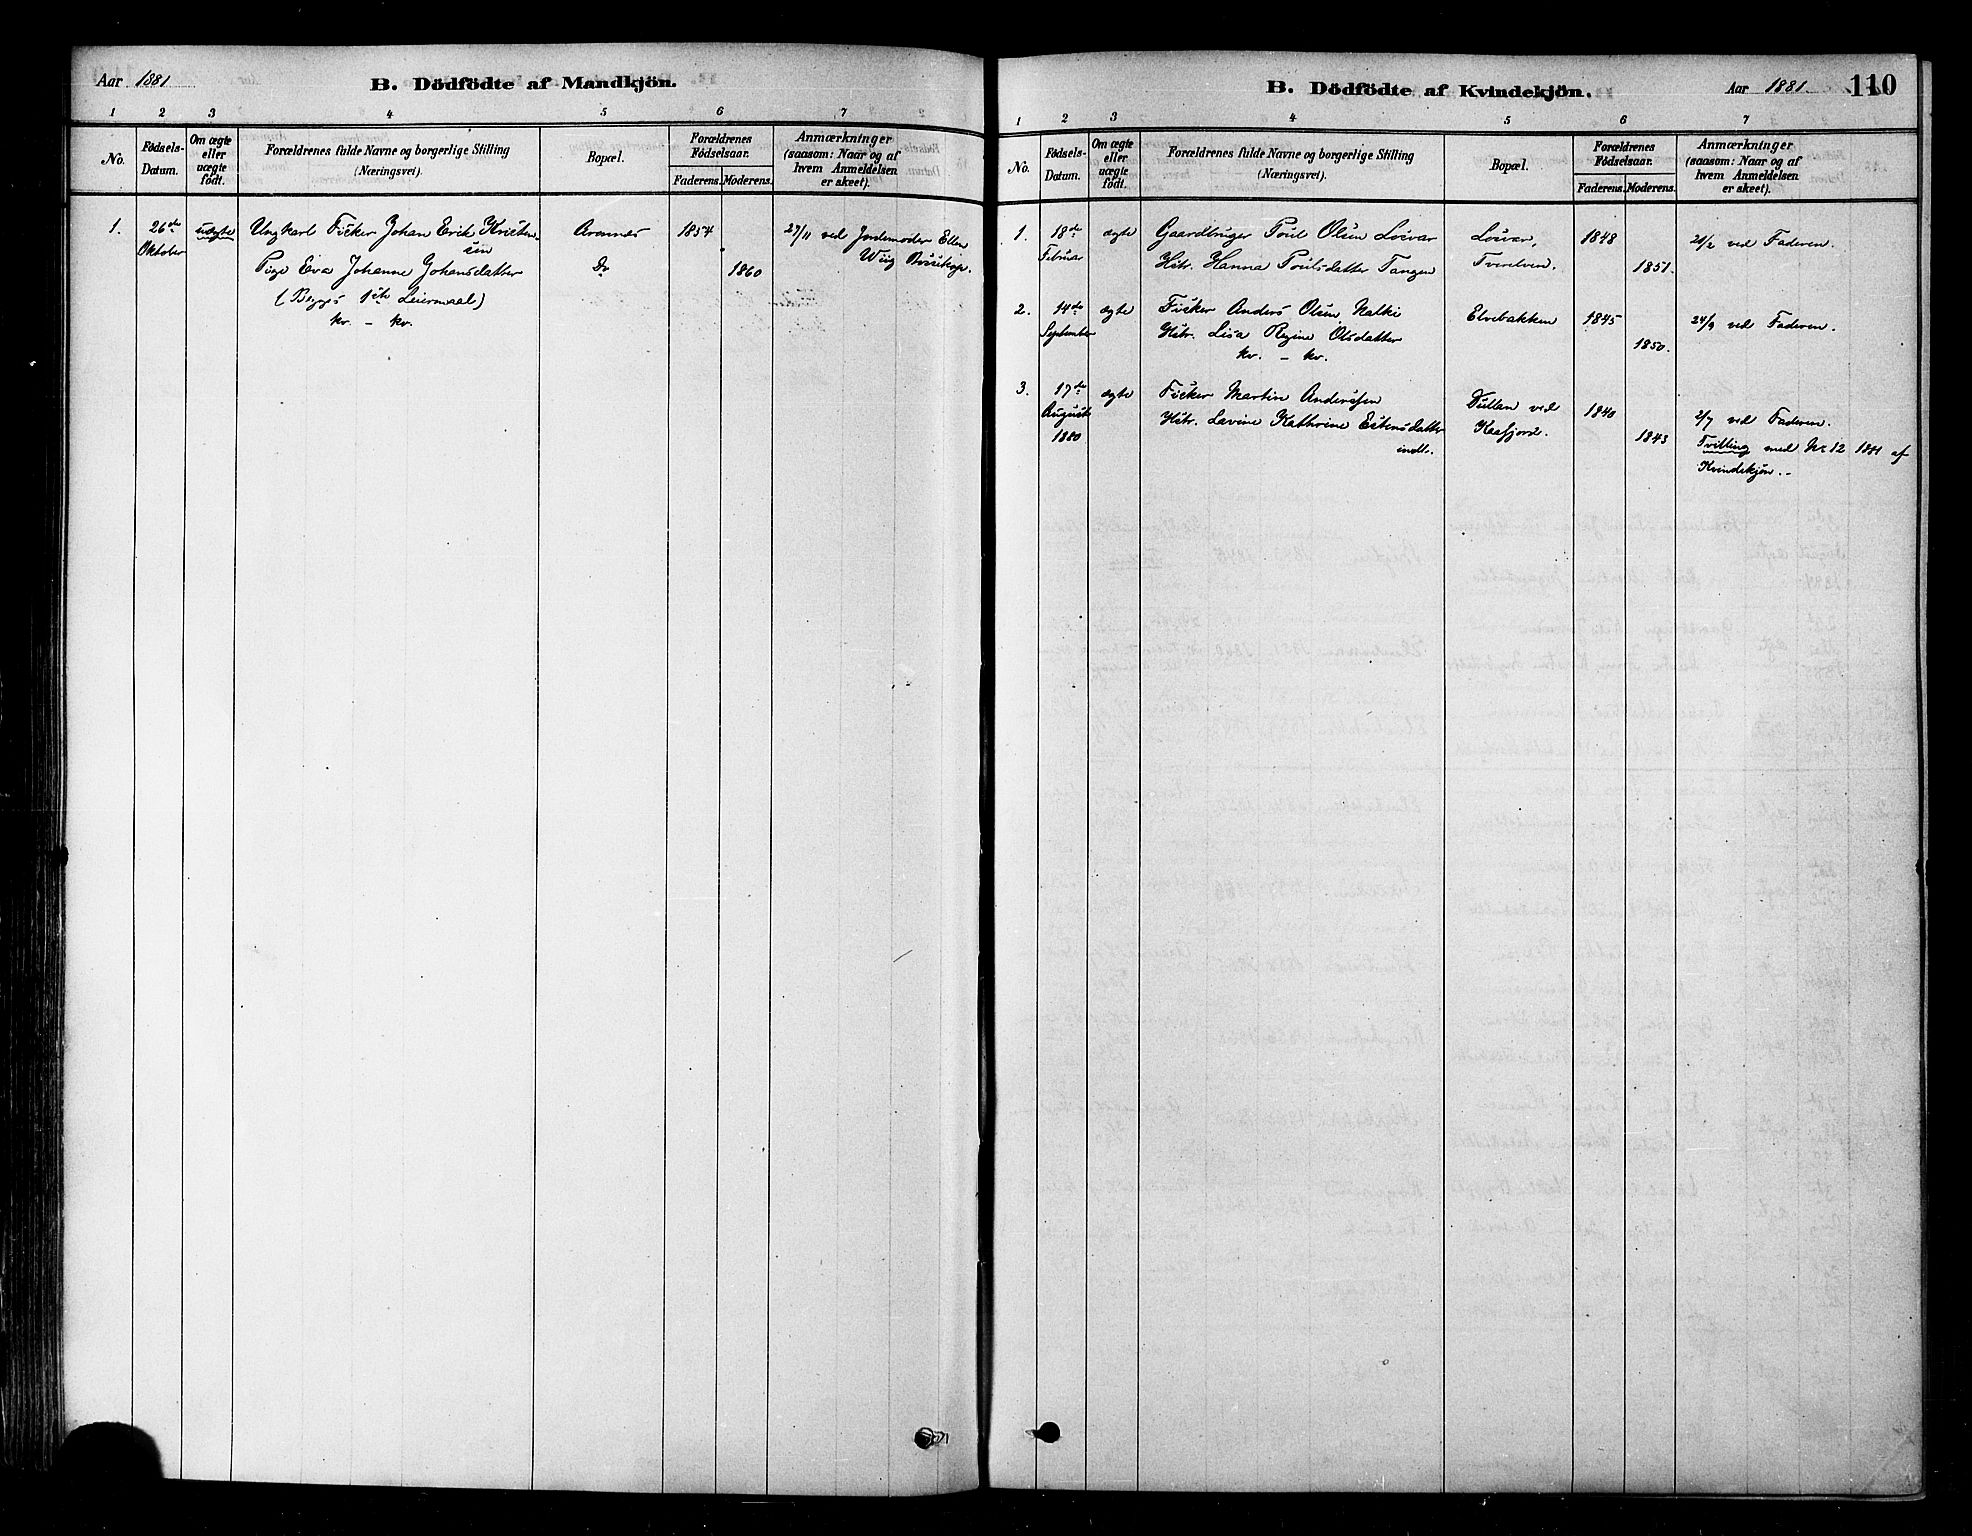 Aar 1881
B. Dödfödte af Mandkjön.
1 2 3 4 5 6 7
No. Fødsels-Datum. Om ægte eller uægte født. Forældrenes fulde Navne og borgerlige Stilling (Næringsvei). Bopæl. Forældrenes Fødselsaar. Faderens. Moderens. Anmærkninger (saasom: Naar og af hvem Anmeldelsen er skeet).
1. 26de uægte Ungkarl Fisker Johan Erik Kristen- Aronnes 1854 27/11 ved Jordemoder Ellen
Oktober sen Wiig Bossekop.
Pige Eva Johanne Johansdatter Do 1860
(Begges 1ste Leiermaal)
kv. - kv.
B. Dödfödte af Kvindekjön.
Aar 1881.
110
1 2 3 4 5 6 7
No. Fødsels-Datum. Om ægte eller uægte født. Forældrenes fulde Navne og borgerlige Stilling (Næringsvei). Bopæl. Forældrenes Fødselsaar. Faderens. Moderens. Anmærkninger (saasom: Naar og af hvem Anmeldelsen er skeet).
1. 18de ægte Gaardbruger Poul Olsen Losvar Losvar, 1848 21/2 ved Faderen.
Februar Hstr. Hanna Poulsdatter Tangen Tverelven. 1851.
2. 14de ægte Fisker Anders Olsen Halki Elvebakken 1845 24/9 ved Faderen.
September Hstr. Lisa Regine Olsdatter 1850.
kv. - kv.
3. 17de ægte Fisker Martin Anderssen ved 1840 2/7 ved Faderen.
August Hstr. Lavine Kathrine Estensdatter Kaafjord. 1843 Tvilling med Nr 12 1881 af
1880 indl. Kvindekjøn.-